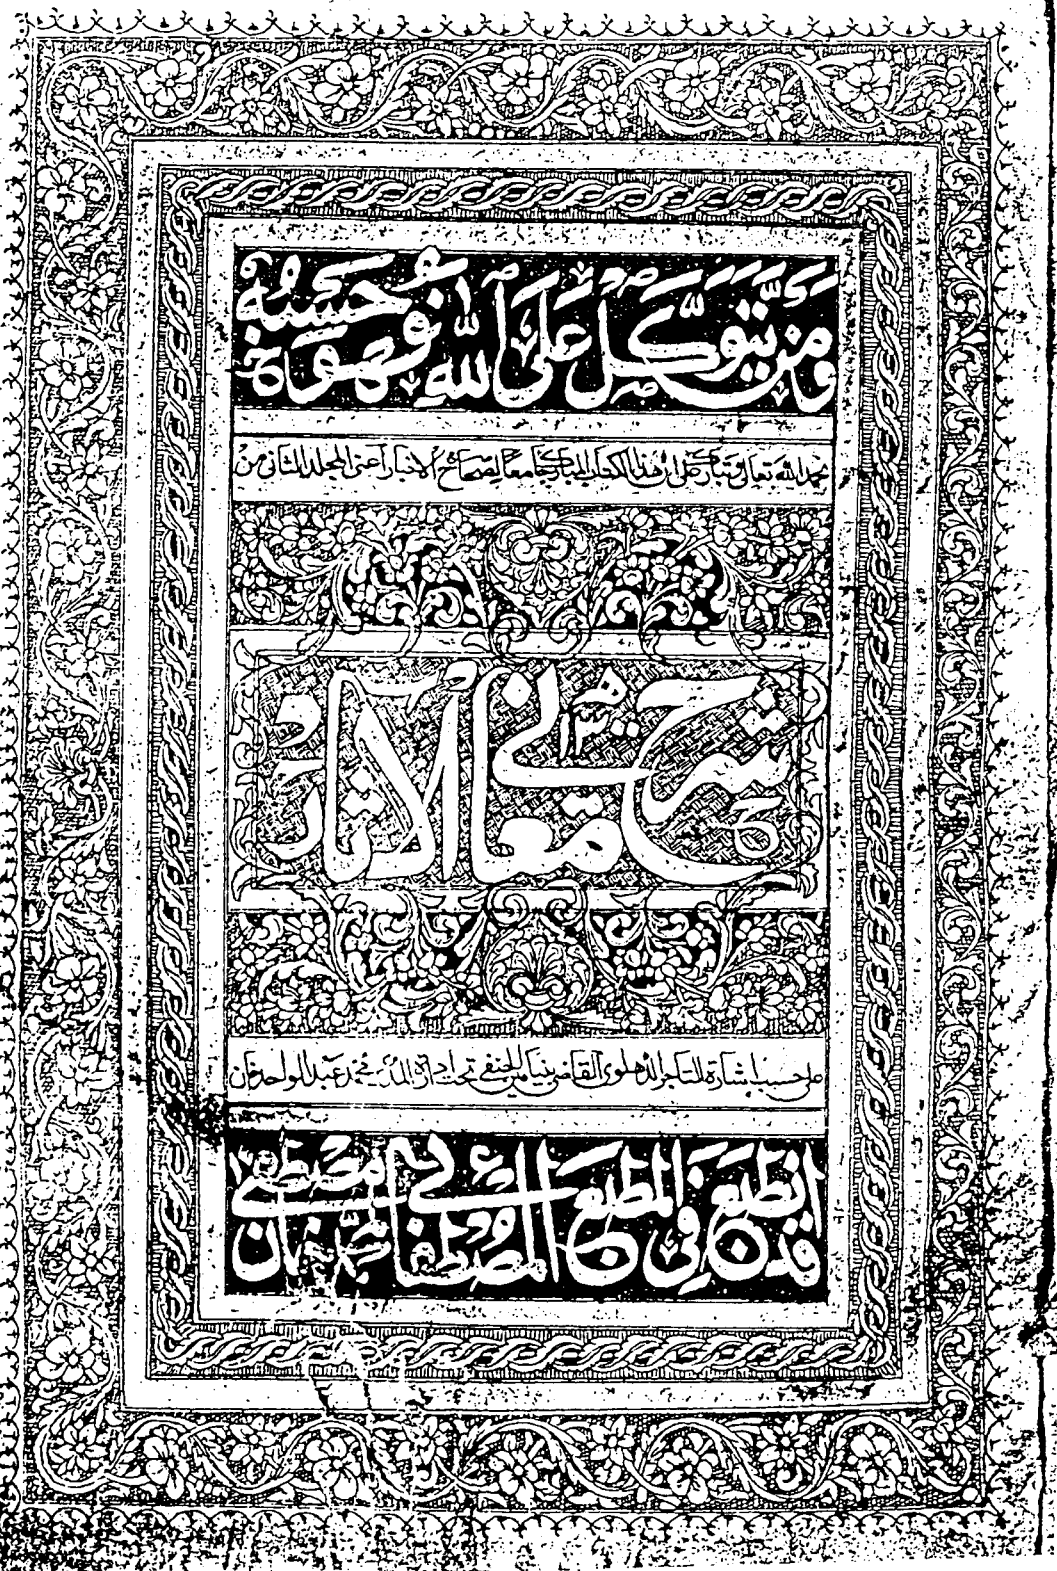 وَمَن يَتَوَكَّلْ عَلَى اللّٰهِ فَهُوَ حَسْبُهُ
بحمد الله تعالى وتبارك على ان هذا الكتاب المبارك جامع لصحائح الاخبار اعنى المجلد الثانى من
شرح معانى الاثار
على حسب اشارة التاجر الدهلوى القاضى بنيامين الحنفى تحت ادارة المدعو محمد عبد الواحد خان
قد انطبع فى المطبع المصطفائى
محمد مصطفى خان